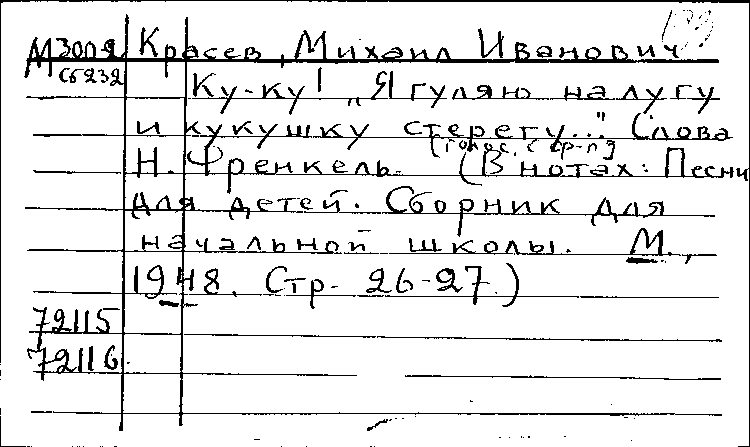 М3002 Красев, Михаил Иванович
Сб232
Ку-ку! „Я гуляю на лугу
и кукушку стерегу..." Слова
[голос. с ф-п]
Н. Френкель. (В нотах: Песни
для детей. Сборник для
начальной школы. М.,
1948. Стр. 26-27.)
72115
72116.